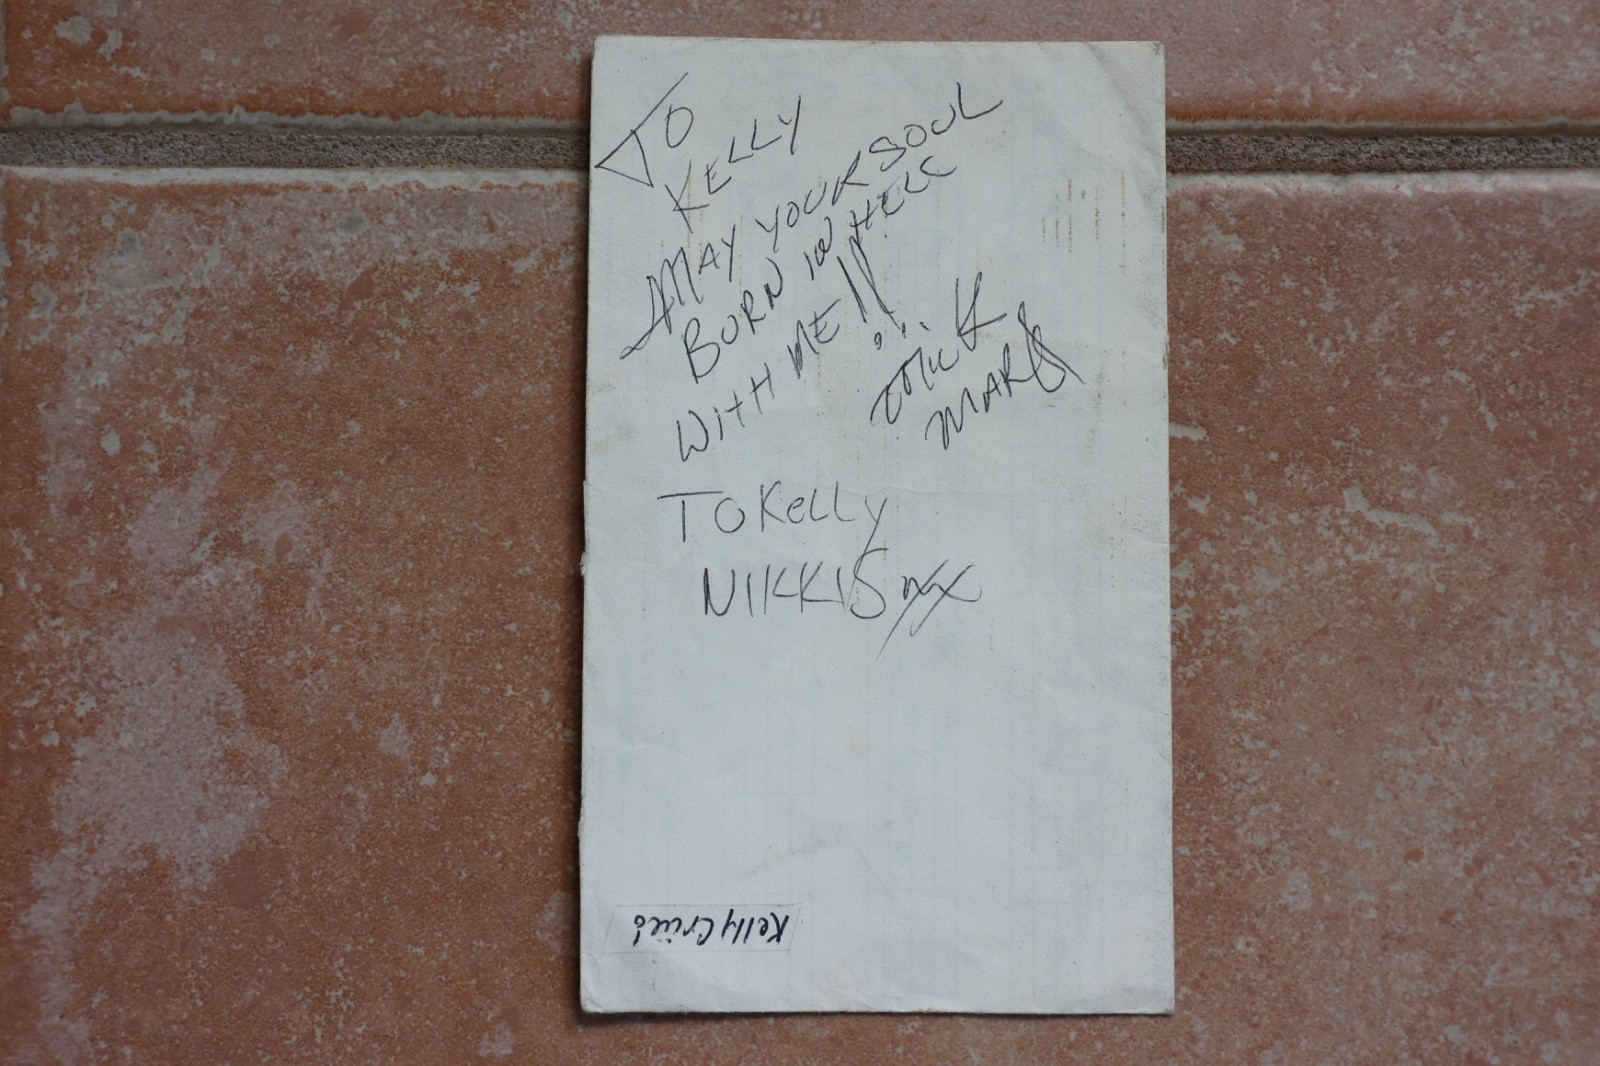 TO
KELLY
MAY YOUR SOUL
BURN IN HELL
WITH ME!!
MICK
MARS
TO KELLY
NIKKI S xx
Kelly Crüe!